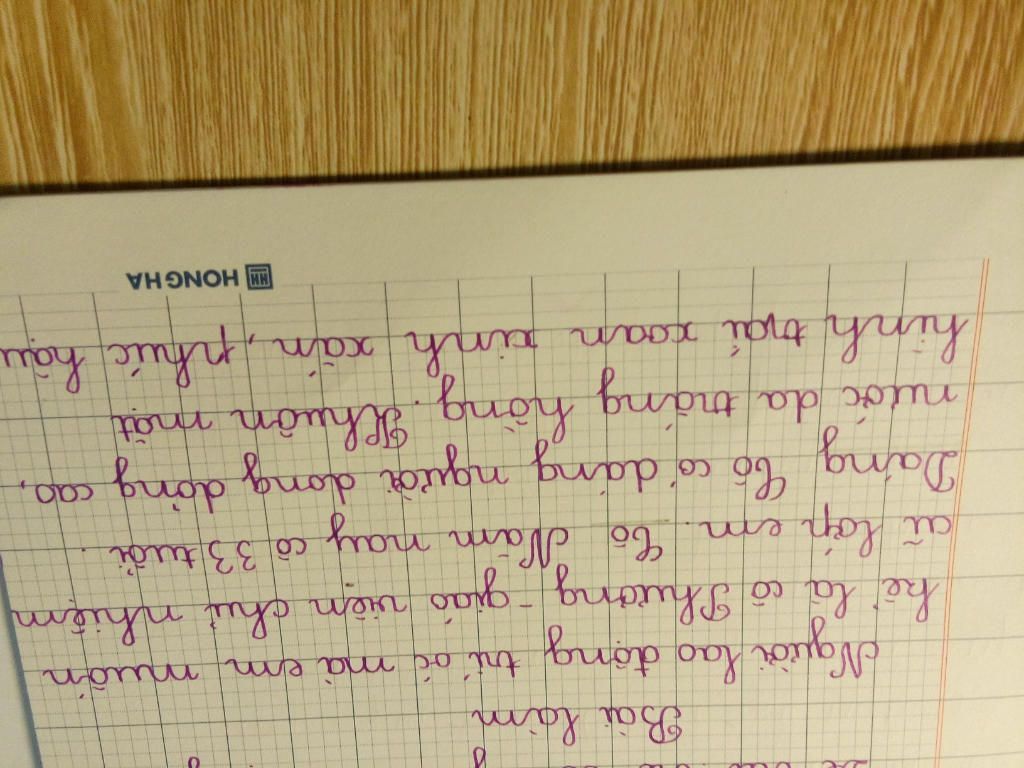 Bài làm
Người lao động trí óc mà em muốn
kể là cô Phương - giáo viên chủ nhiệm
cũ lớp em. Cô Năm nay cô 33 tuổi.
Dáng Cô có dáng người dong dỏng cao,
nước da trắng hồng. Khuôn mặt
hình trái xoan xinh xắn, phúc hậu
HONG HA